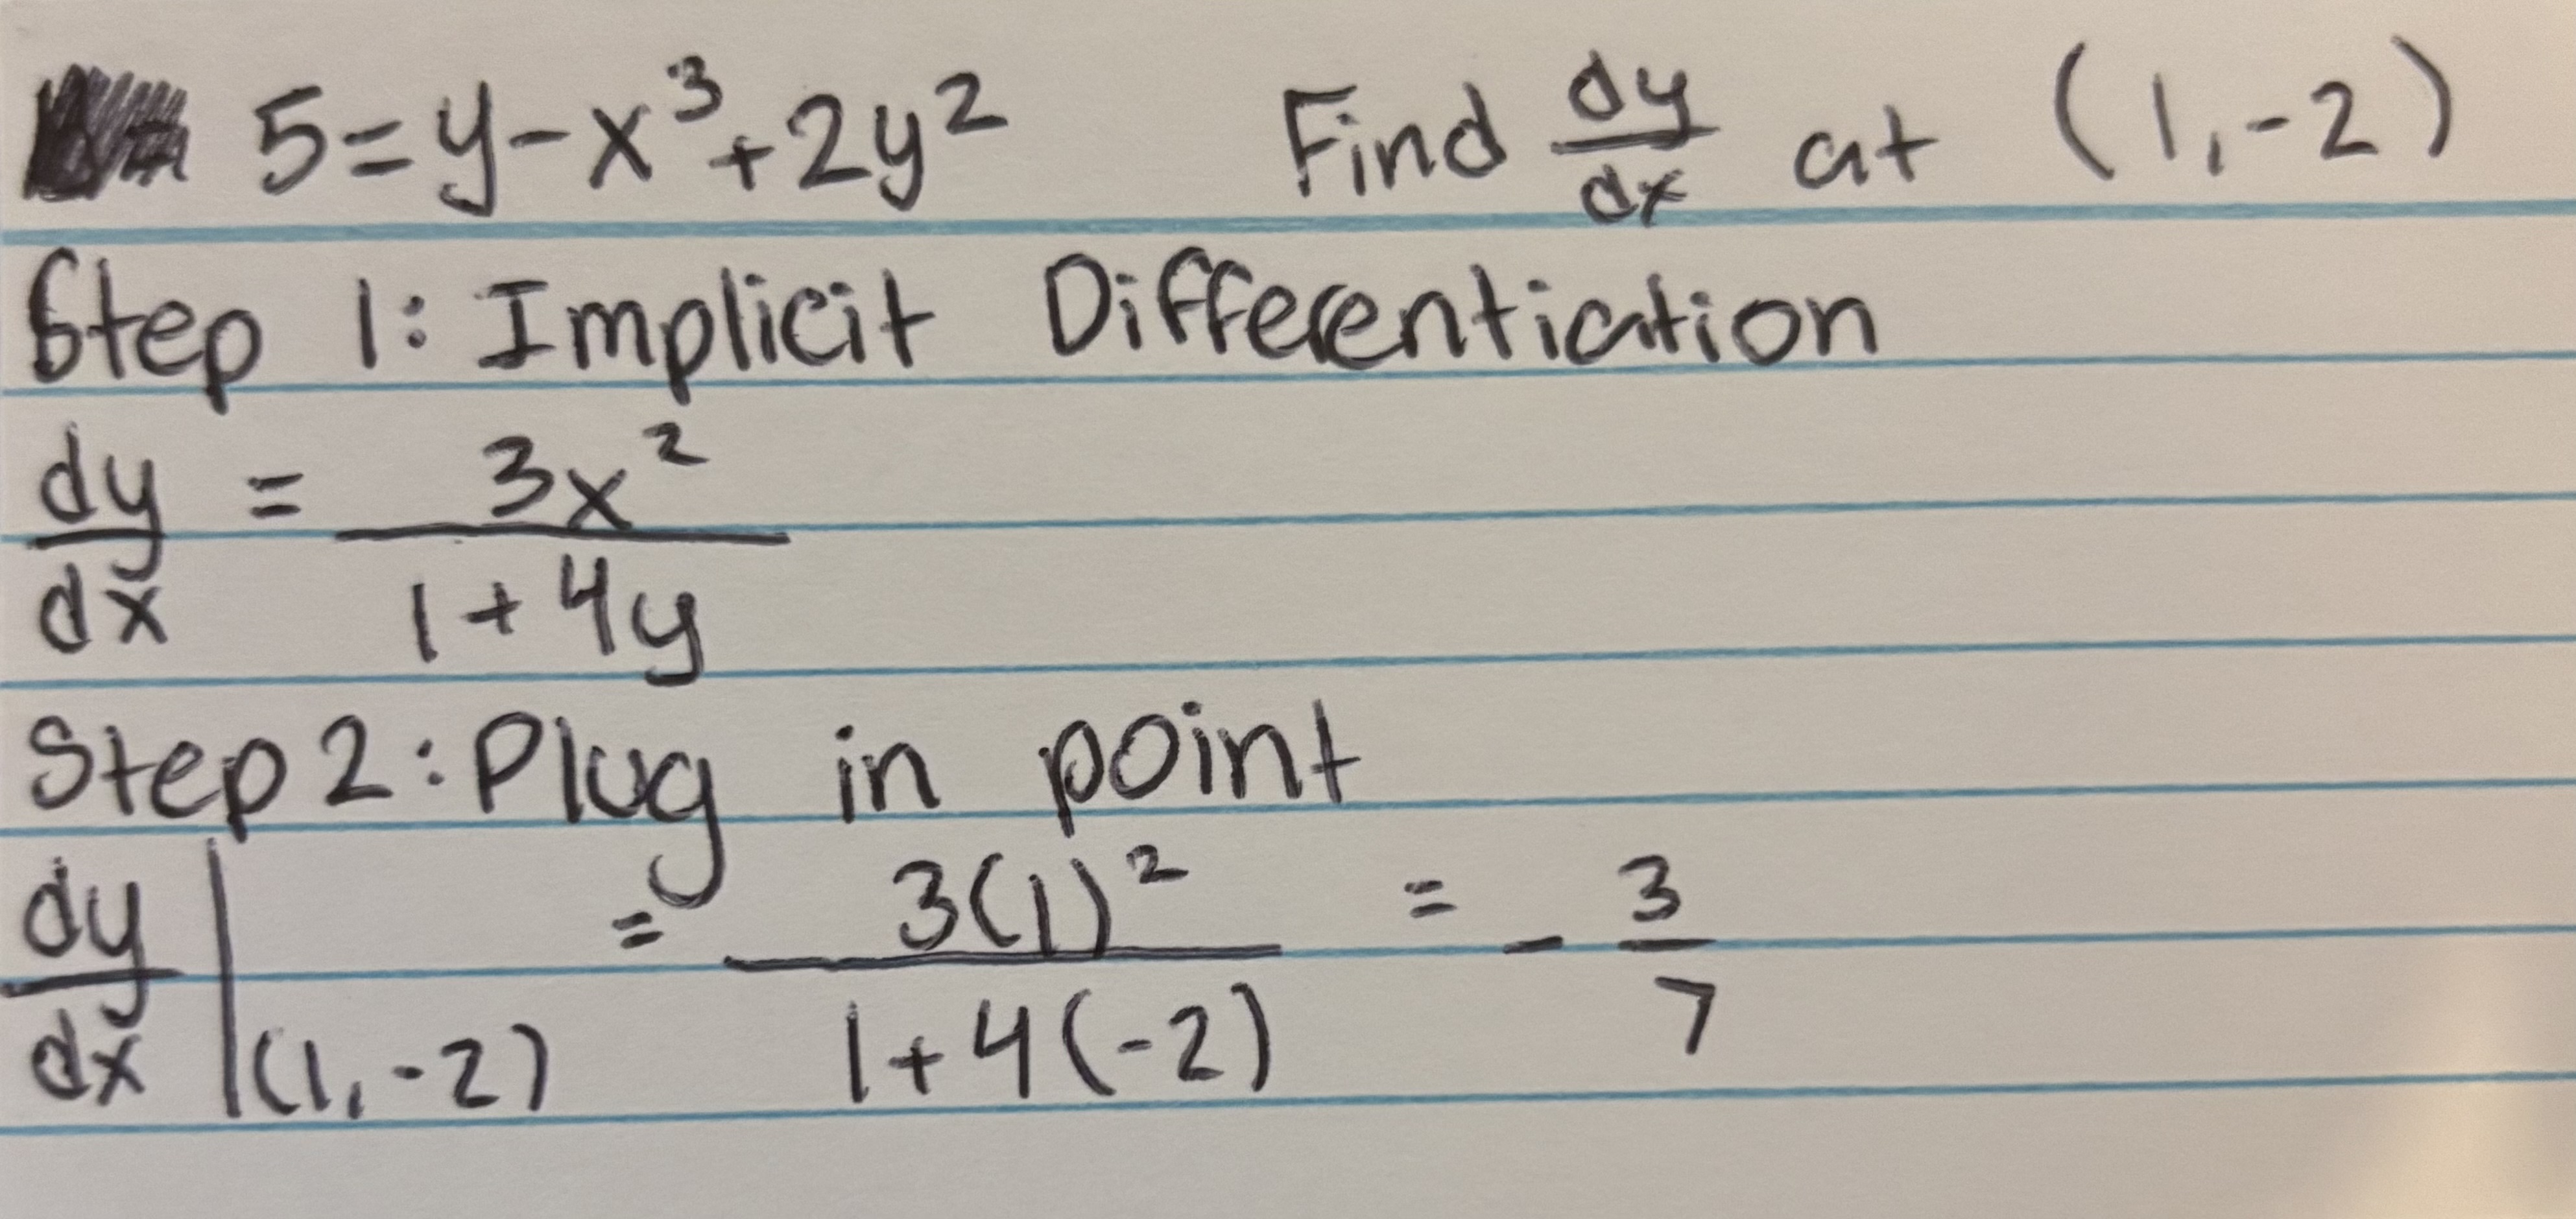 5=y-x³+2y² Find dy/dx at (1,-2)
Step 1: Implicit Differentiation
dy/dx = 3x²/1+4y
Step 2: Plug in point
dy/dx|(1,-2) = 3(1)²/1+4(-2) = - 3/7